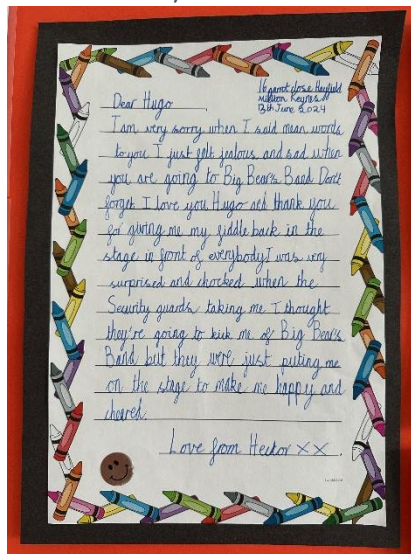 16 parrot close Hayfield
Milton Keynes
13th June 2024
Dear Hugo
I am very sorry when I said mean words
to you I just felt jealous and sad when
you are going to Big Bear's Band Don't
forget I love you Hugo and thank you
for giving me my fiddle back in the
stage in front of everybody I was very
surprised and chocked when the
Security guards taking me I thought
they're going to kick me of Big Bear's
Band but they were just puting me
on the stage to make me happy and
cheered.
Love from Hector XX.